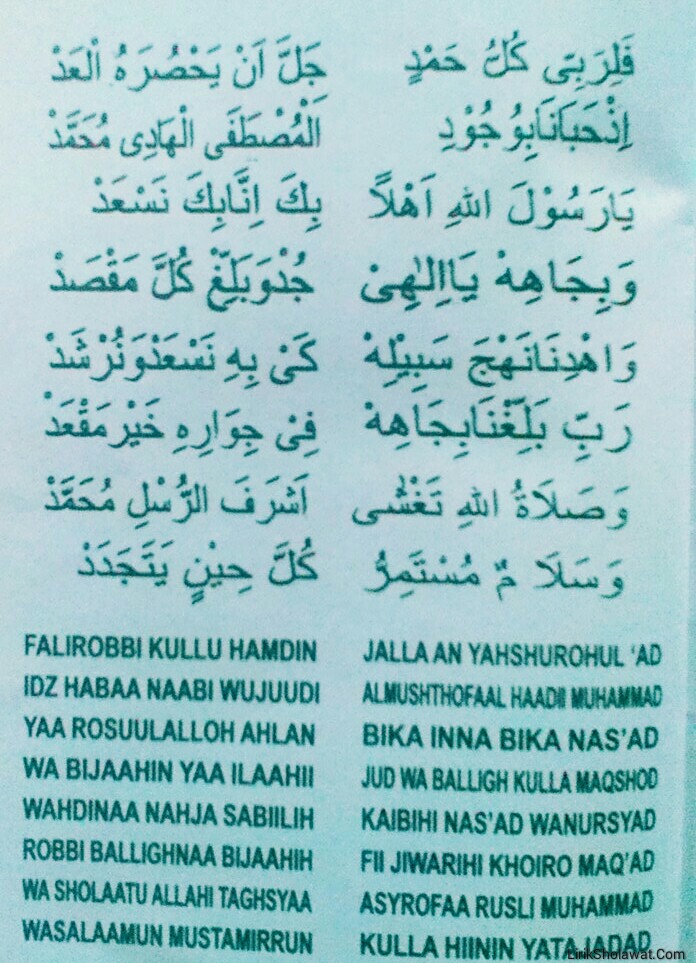 فَلِرَبِّى كُلُّ حَمْدٍ جَلَّ اَنْ يَحْصُرَهُ الْعَدْ
اِذْحَبَانَابِوُجُوْدِ اَلْمُصْطَفَى الْهَادِى مُحَمَّدْ
يَارَسُوْلَ اللهِ اَهْلاً بِكَ اِنَّابِكَ نَسْعَدْ
وَبِجَاهِهْ يَااِلٰهِىْ جُدْوَبَلِّغْ كُلَّ مَقْصَدْ
وَاهْدِنَانَهْجَ سَبِيْلِهْ كَىْ بِهِ نَسْعَدْوَنُرْشَدْ
رَبِّ بَلِّغْنَابِجَاهِهْ فِىْ جِوَارِهِ خَيْرمَقْعَدْ
وَصَلَاةُ اللهِ تَغْشٰى اَشْرَفَ الرُّسْلِ مُحَمَّدْ
وَسَلَا مٌ مُسْتَمِرُّ كُلَّ حِيْنٍ يَتَجَدَدْ
FALIROBBI KULLU HAMDIN JALLA AN YAHSHUROHUL 'AD
IDZ HABAA NAABI WUJUUDI ALMUSHTHOFAAL HAADII MUHAMMAD
YAA ROSUULALLOH AHLAN BIKA INNA BIKA NAS'AD
WA BIJAAHIN YAA ILAAHII JUD WA BALLIGH KULLA MAQSHOD
WAHDINAA NAHJA SABIILIH KAIBIHI NAS'AD WANURSYAD
ROBBI BALLIGHNAA BIJAAHIH FII JIWARIHI KHOIRO MAQ'AD
WA SHOLAATU ALLAHI TAGHSYAA ASYROFAA RUSLI MUHAMMAD
WASALAAMUN MUSTAMIRRUN KULLA HIININ YATAJADAD
LirikSholawat.Com